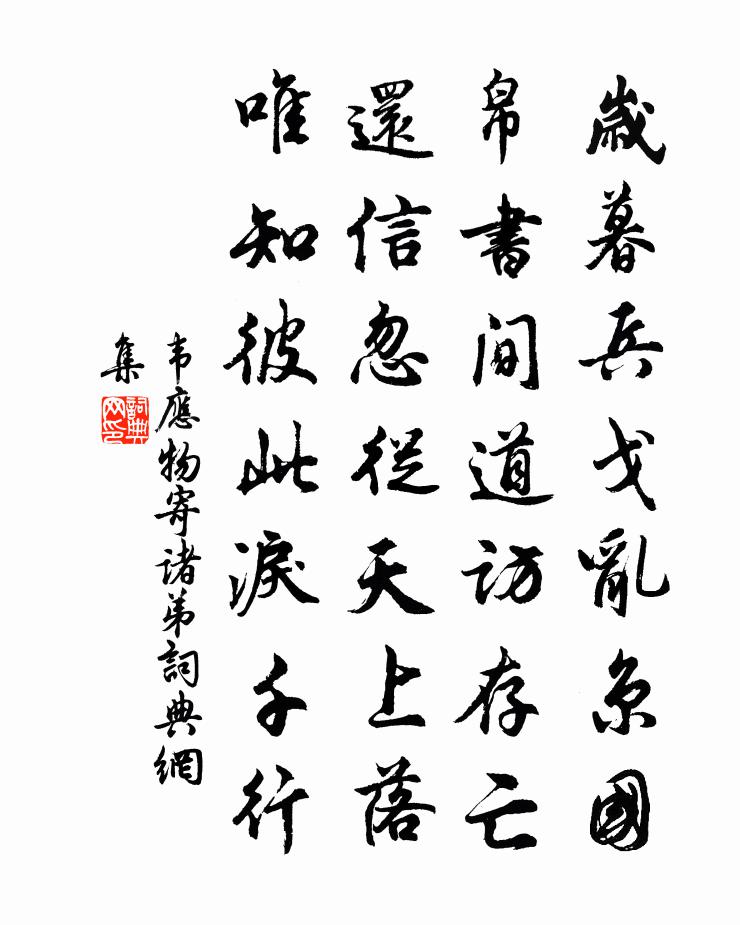 歲暮兵戈亂京國
帛書間道訪存亡
還信忽從天上落
唯知彼此淚千行
韦應物寄诸弟詞典網
集
詞典
网印